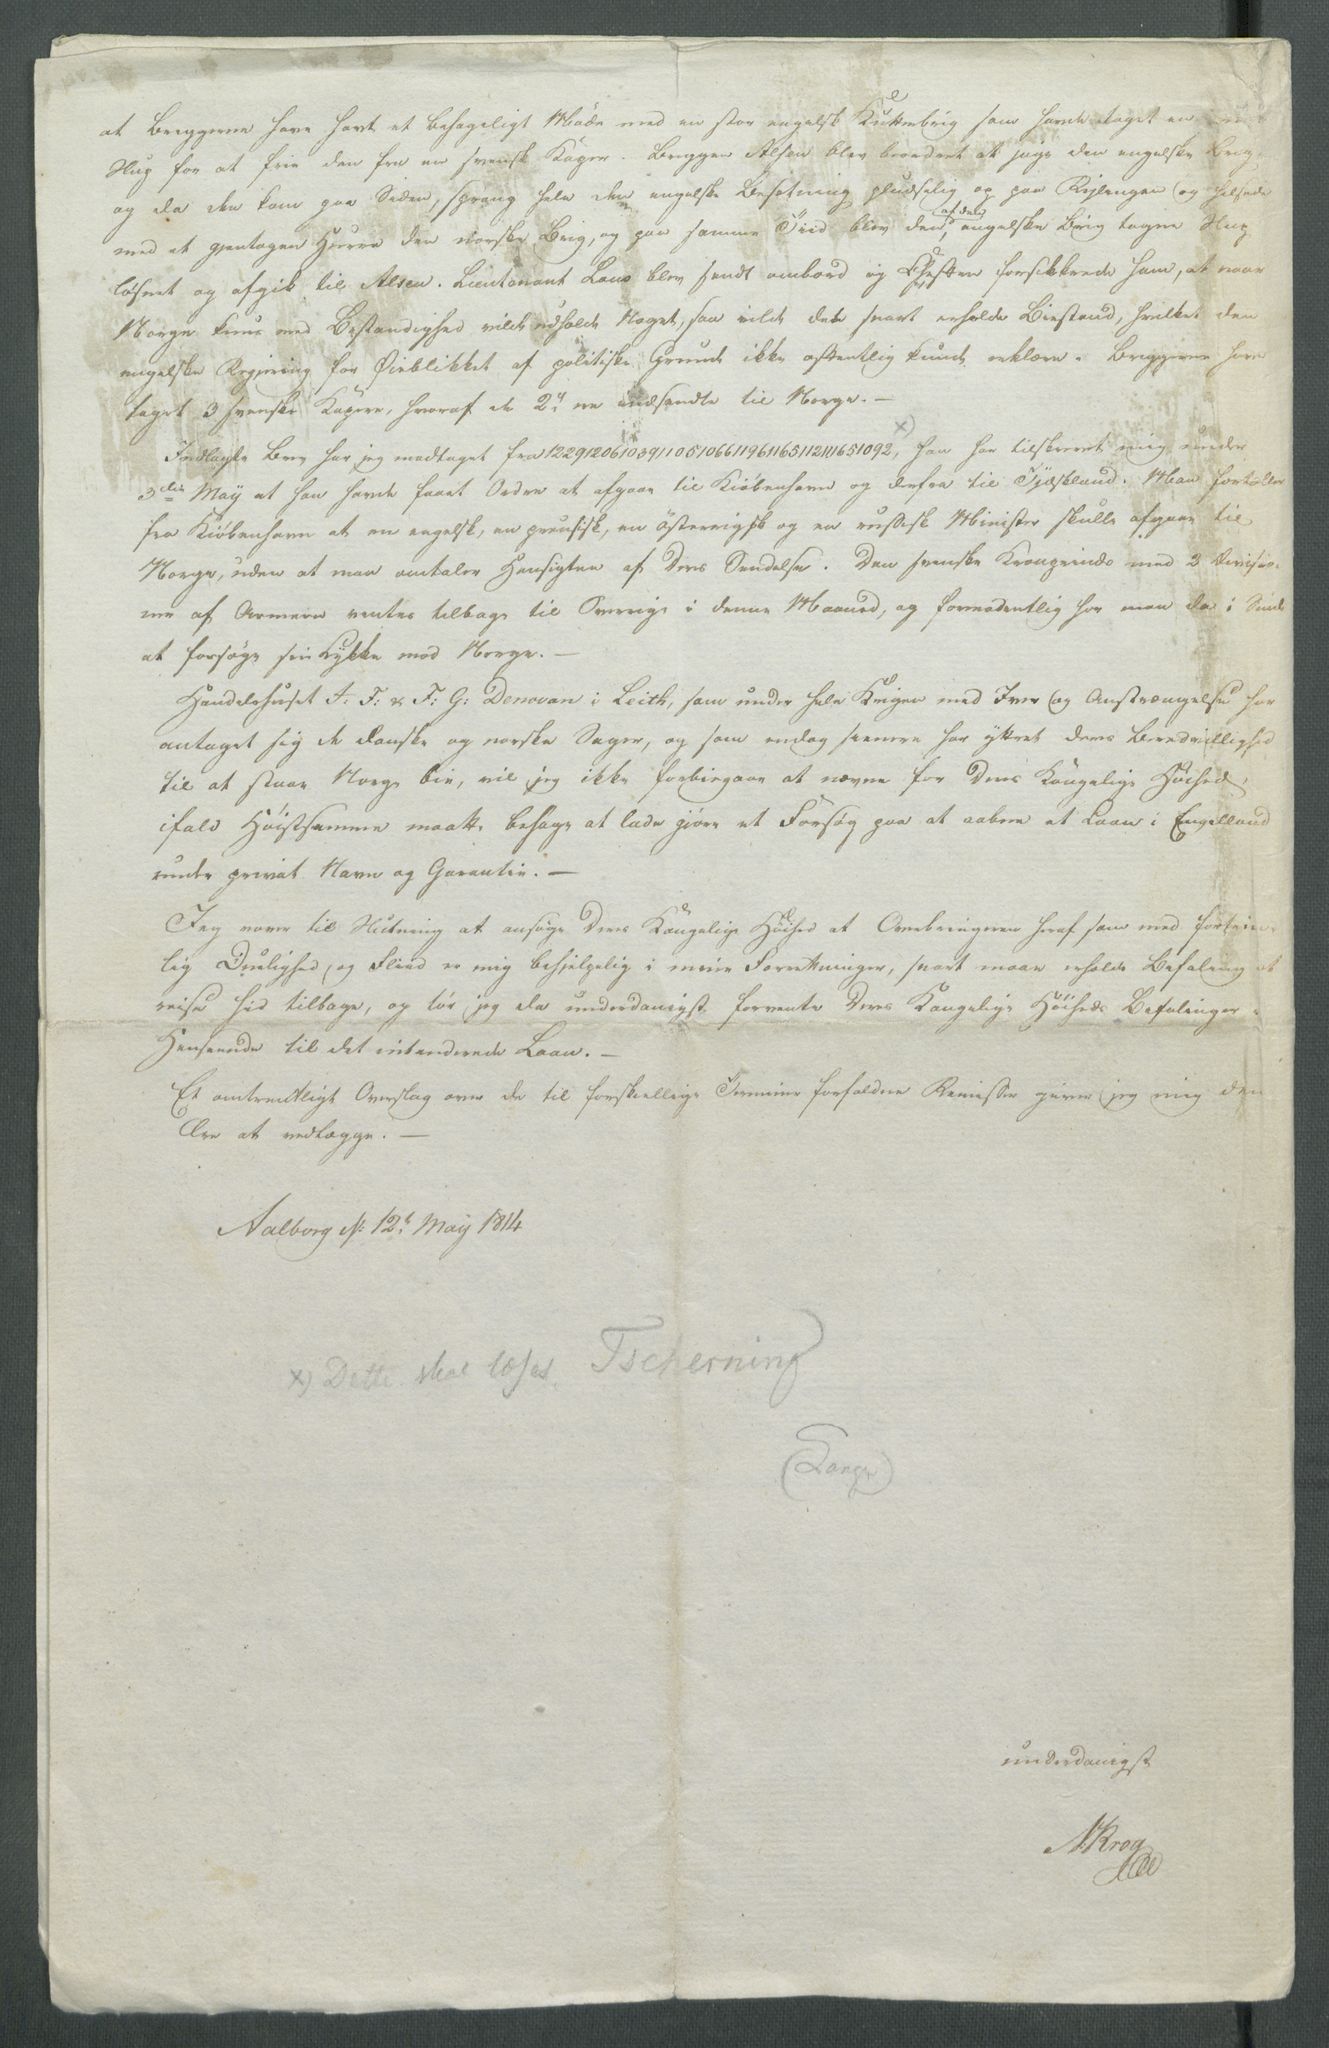 at Briggerne have havt et behageligt Møde med en stor engelsk Kutterbrig som havde taget en
Slup for at frie den fra en svensk Kaper. Briggen Alsen blev beordret at jage den engelske Brig,
og da den kom paa Siden, sprang hele den engelske Besætning pludselig op paa Rejlengen og hilsede
med et gjentagen Hurra den norske Brig, og paa samme Tiid blev den, af den engelske Brig tagne Slup
løsnet og afgik til Alsen. Lieutenant Lous blev sendt ombord og Cheffen forsikkrede ham, at naar
Norge kuns med Bestandighed vilde udholde Noget, saa vilde det snart erholde Biestand, hvilket den
engelske Regjering for Øieblikket af politiske Grunde ikke offentlig kunde erklære. Briggerne have
taget 3 svenske Kapere, hvoraf de 2de ere indsendte til Norge. —
Indlagte Brev har jeg modtaget fra 1229120610391105106611961165112111651092, x) han har tilskrevet mig under
3die May at han havde faaet Ordre at afgaae til Kiöbenhavn og derfra til Tydskland. Man fortæller
fra Kiöbenhavn at en engelsk, en preusisk, en österrigsk og en russisk Minister skulle afgaae til
Norge, uden at man omtaler Hensigten af Deres Sendelse. Den svenske Kronprinds med 2 Divisio-
ner af Armeen ventes tilbage til Sverrige i denne Maaned, og formodentlig har man da i Sinde
at forsøge sin Lykke mod Norge. —
Handelshuset J: F: & F: G: Denovan i Leith, som under hele Krigen med Iver og Anstrængelse har
antaget sig de danske og norske Sager, og som endog senere har yttret deres Beredvillighed
til at staae Norge bie, vil jeg ikke forbiegaae at nævne for Deres Kongelige Höihed,
ifald Höistsamme maatte behage at lade gjöre et Forsøg paa at aabne et Laan i Engelland
under privat Navn og Garantie. —
Jeg vover til Slutning at ansøge Deres Kongelige Höihed at Overbringeren heraf som med fortrin-
lig Duelighed og Fliid er mig behjelpelig i mine Forretninger, snart maae erholde Befaling at
reise hid tilbage, og tör jeg da underdanigst forvente Deres Kongelige Höiheds Befalinger i
Henseende til det intenderede Laan. —
Et omtrentligt Overslag over de til forskiellige Terminer forfaldne Remisser giver jeg mig den
Ære at vedlægge. —
Aalborg d: 12t May 1814
x) Dette skal læses. Tscherning
(Lange)
underdanigst
NKrog